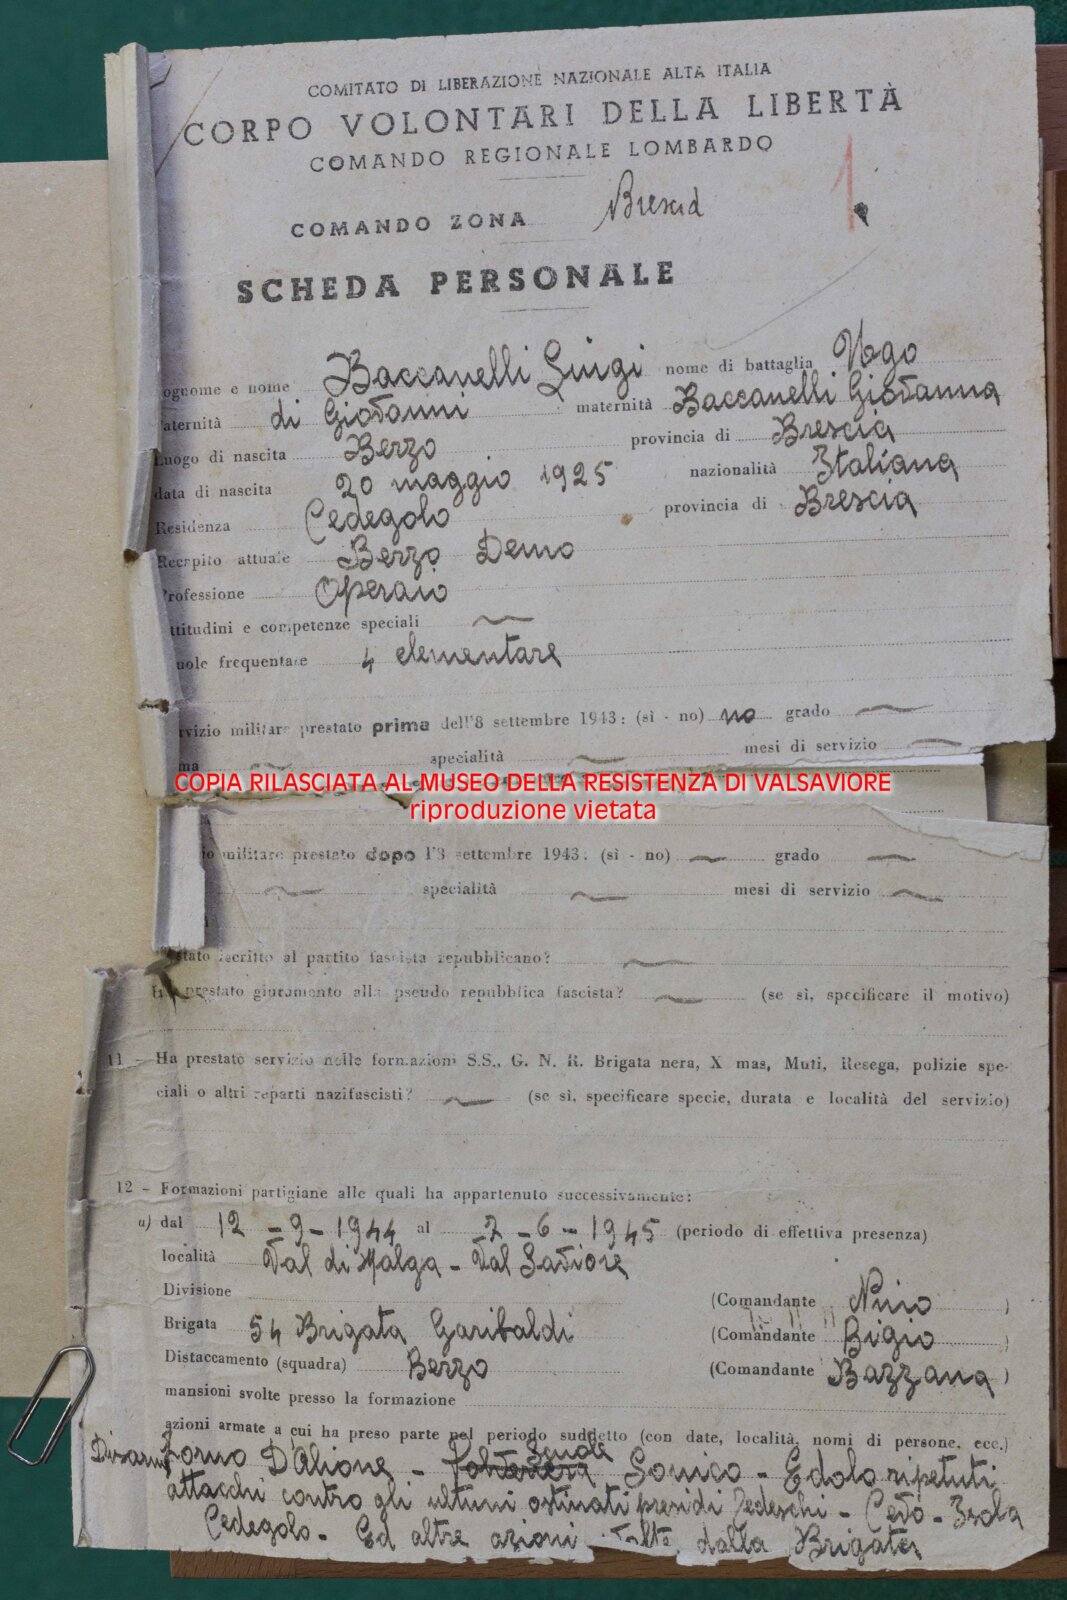 COMITATO DI LIBERAZIONE NAZIONALE ALTA ITALIA
CORPO VOLONTARI DELLA LIBERTÀ
COMANDO REGIONALE LOMBARDO
1
COMANDO ZONA Brescia
SCHEDA PERSONALE
ognome e nome Baccanelli Luigi nome di battaglia Ugo
aternità di Giovanni maternità Baccanelli Giovanna
Luogo di nascita Berzo provincia di Brescia
data di nascita 20 maggio 1925 nazionalità Italiana
Residenza Cedegolo provincia di Brescia
Recapito attuale Berzo Demo
rofessione Operaio
ttitudini e competenze speciali
uole frequentate 4 elementare
rvizio militare prestato prima dell'8 settembre 1943: (sì - no) no grado
ma specialità mesi di servizio
COPIA RILASCIATA AL MUSEO DELLA RESISTENZA DI VALSAVIORE
riproduzione vietata
io militare prestato dopo l'8 settembre 1943: (sì - no) grado
specialità mesi di servizio
stato iscritto al partito fascista repubblicano?
Ha prestato giuramento alla pseudo repubblica fascista? (se sì, specificare il motivo)
11 - Ha prestato servizio nelle formazioni S.S., G. N. R. Brigata nera, X mas, Muti, Resega, polizie spe-
ciali o altri reparti nazifascisti? (se sì, specificare specie, durata e località del servizio)
12 - Formazioni partigiane alle quali ha appartenuto successivamente:
a) dal 12-9-1944 al 2-6-1945 (periodo di effettiva presenza)
località Val di Malga - Val Saviore
Divisione (Comandante Nino )
Brigata 54 Brigata Garibaldi (Comandante Bigio )
Distaccamento (squadra) Berzo (Comandante Bazzana )
mansioni svolte presso la formazione
azioni armate a cui ha preso parte nel periodo suddetto (con date, località, nomi di persone, ecc.)
Forno D'Alione - Scuole Sonico - Edolo ripetuti
attacchi contro gli ultimi ostinati presidi Tedeschi - Cevo - Isola
Cedegolo - Ed altre azioni fatte dalla Brigata